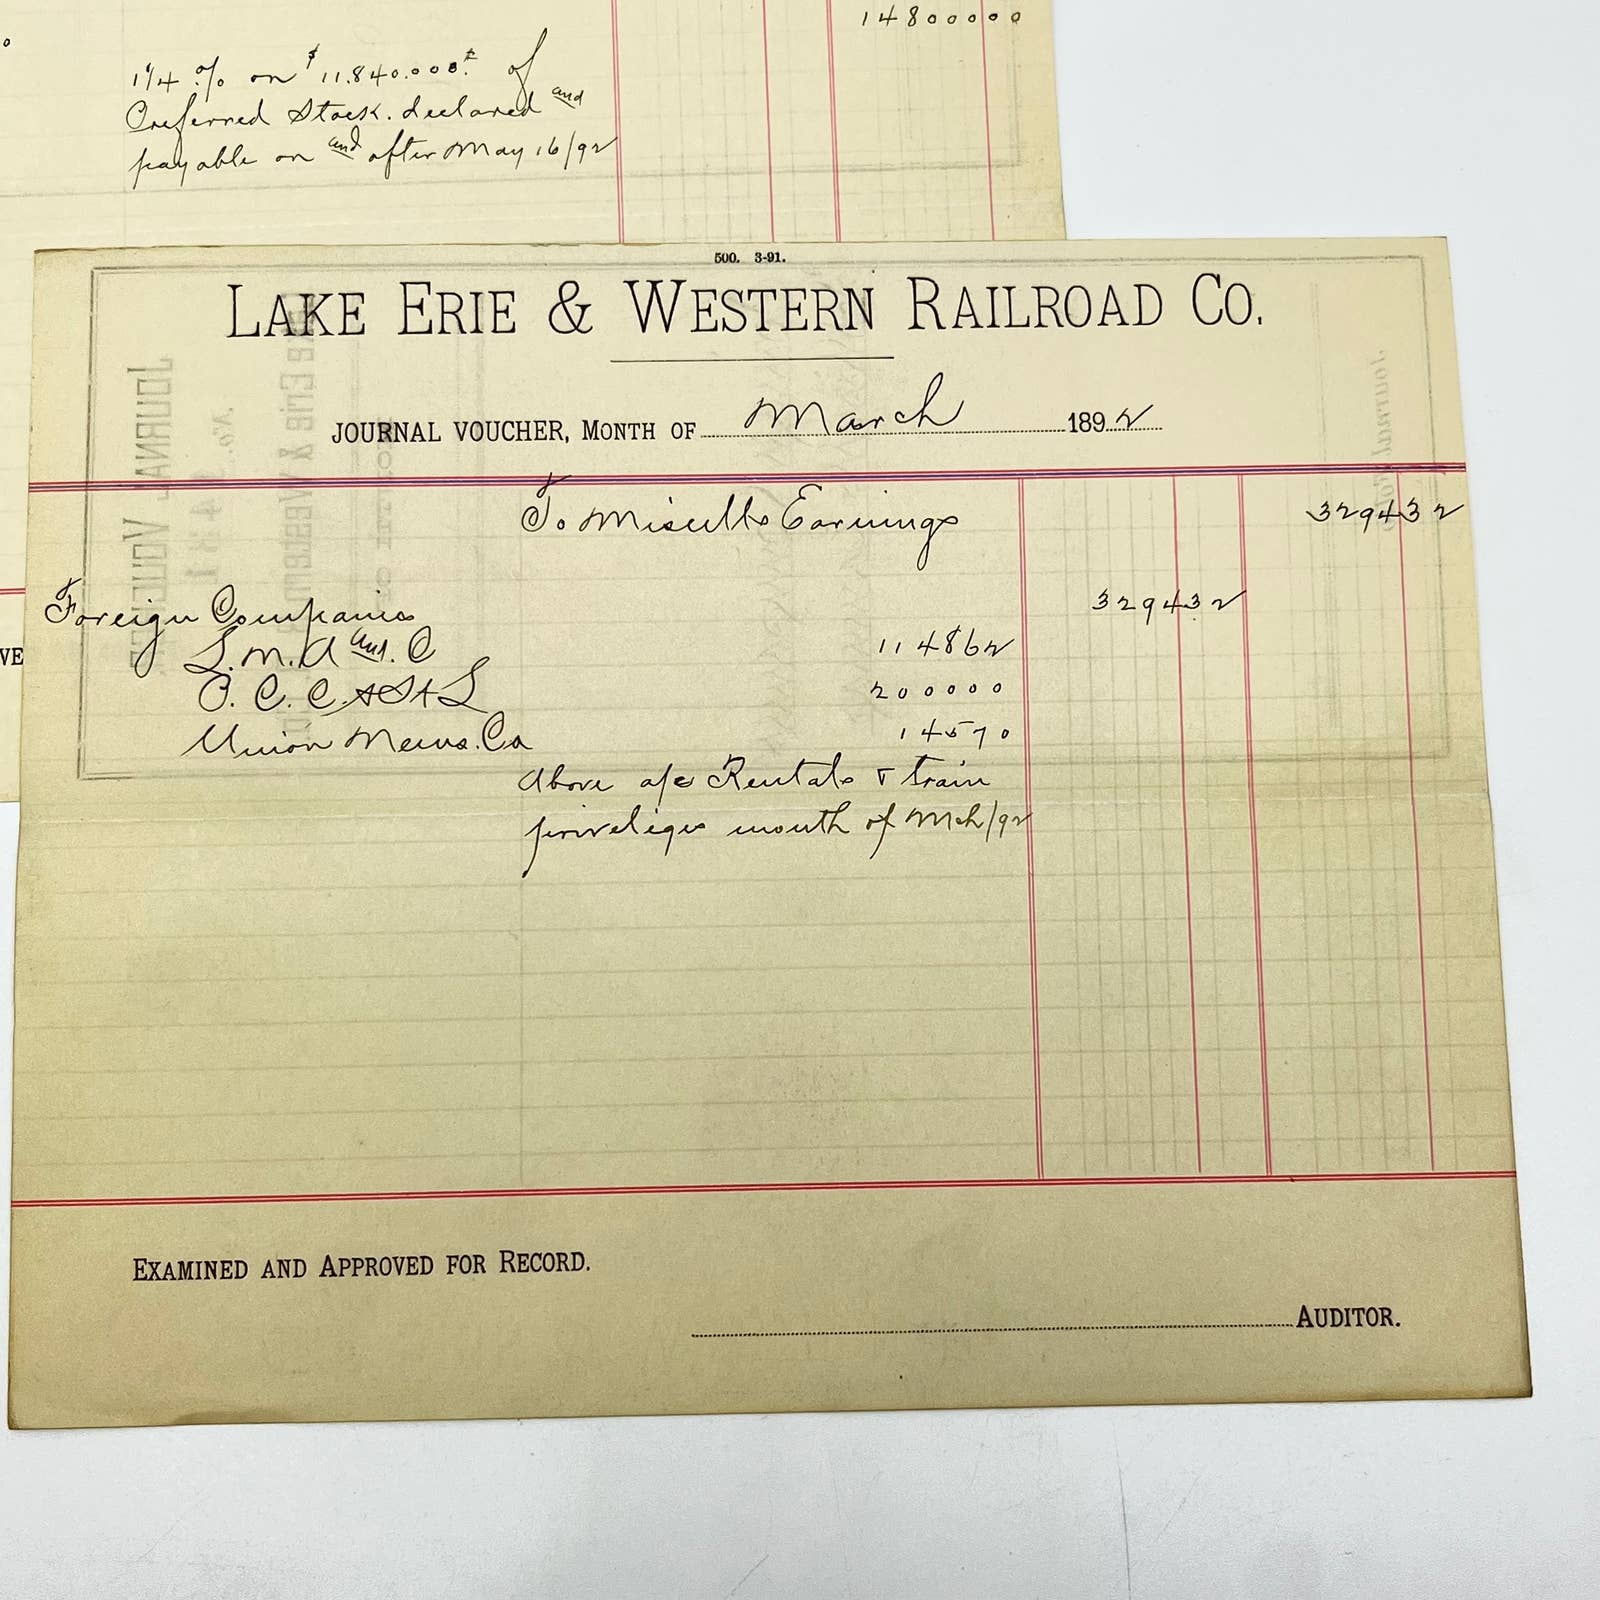 14800000
1 1/4 % on $11.840.000 of
Preferred Stock. declared and
payable on and after May 16/92
500. 3-91.
LAKE ERIE & WESTERN RAILROAD CO.
JOURNAL VOUCHER, MONTH OF March 1892
To Miscells Earnings 329432
Foreign Companies 329432
L. N. A and. C 114862
C. C. C. & St L 200000
Union News. Co 14570
Above a/c Rentals & train
priveliges month of Mch/92
VE
EXAMINED AND APPROVED FOR RECORD.
AUDITOR.